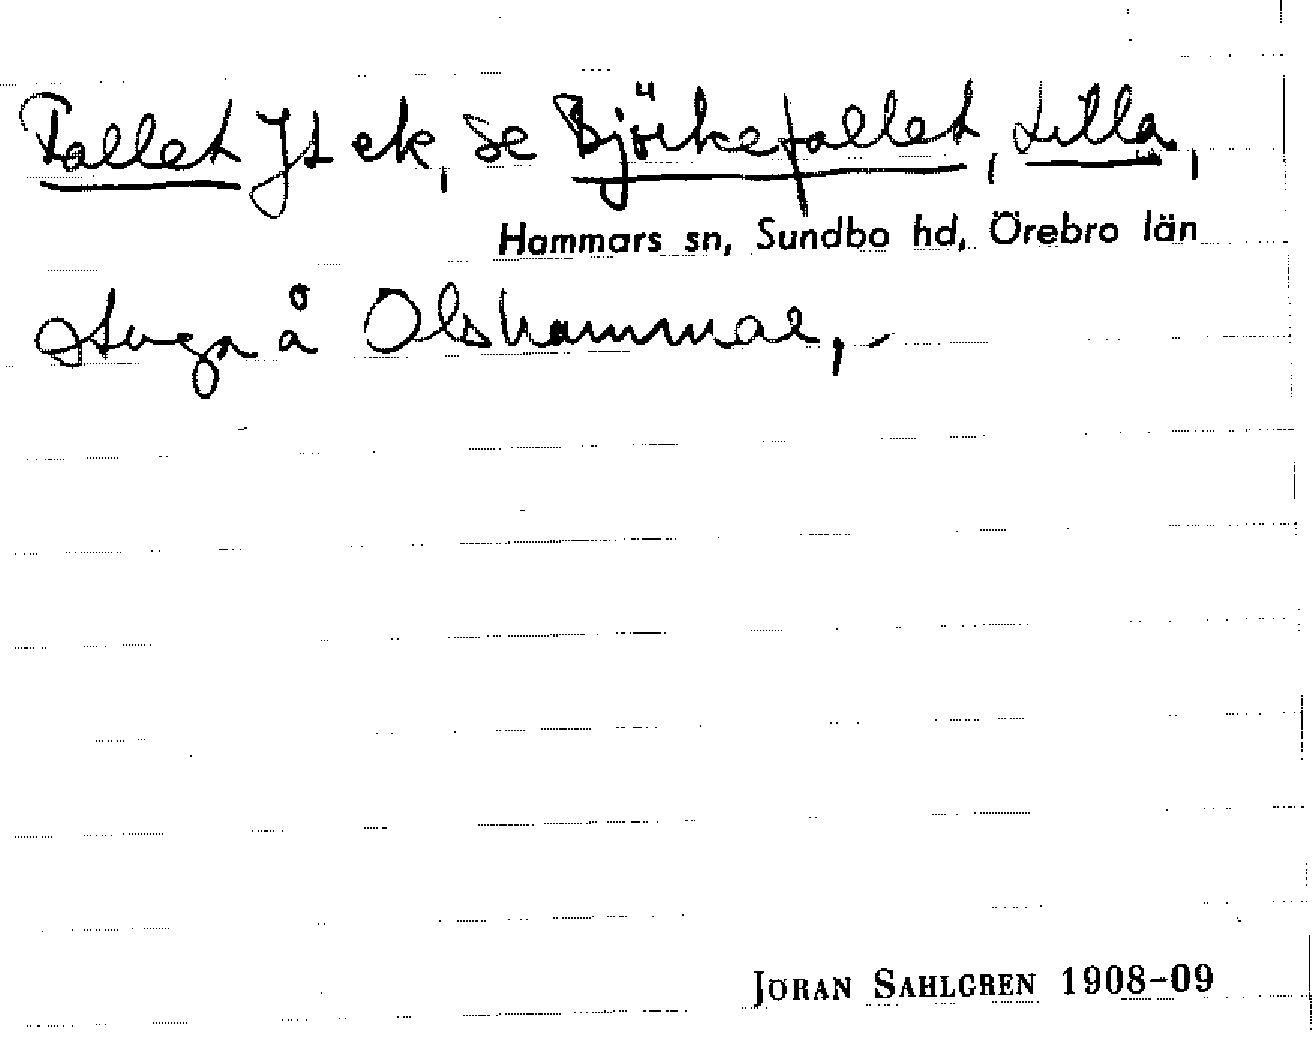 Fallet Jt ek, se Björkefallet, Lilla,
Hammars sn, Sundbo hd, Örebro län
Stuga å Olshammar,.-
JÖRAN SAHLGREN 1908-09